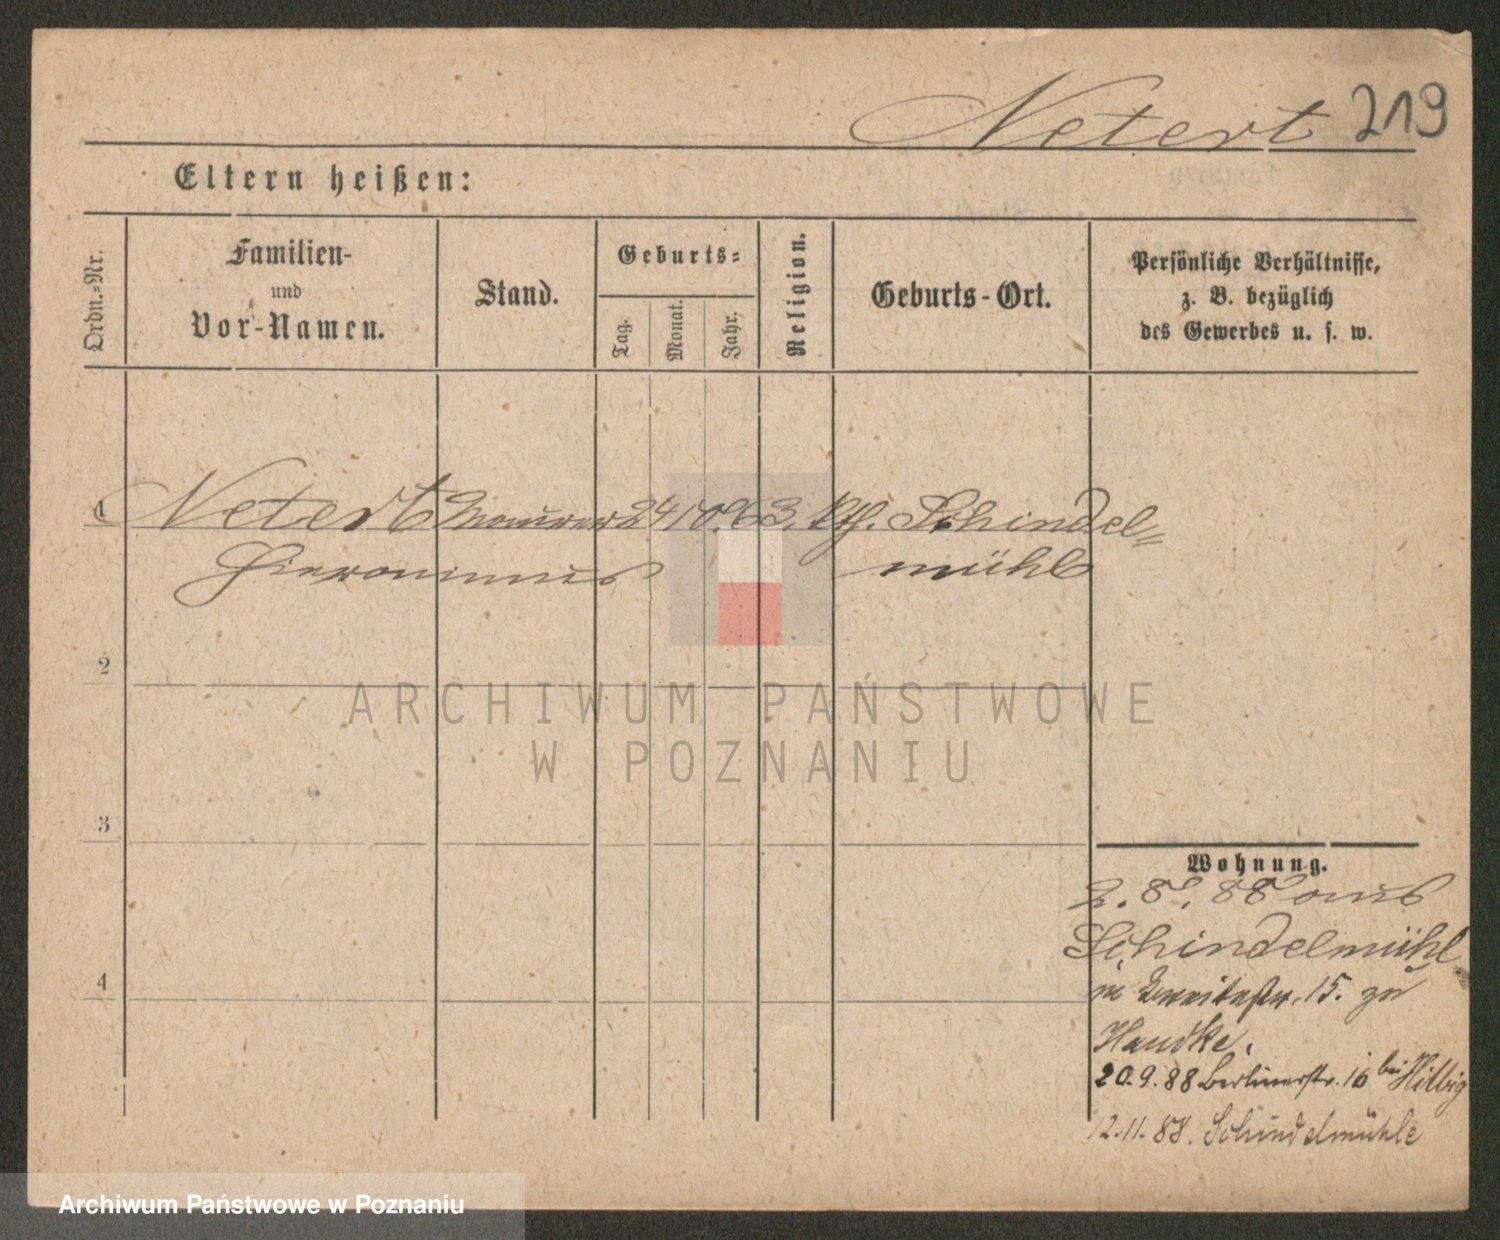 Netert 219
Eltern heißen:
Ordn.-Nr.
Familien-
und
Vor-Namen.
Stand.
Geburts-
Tag.
Monat.
Jahr.
Religion.
Geburts-Ort.
Persönliche Verhältnisse,
z. B. bezüglich
des Gewerbes u. s. w.
1 Netert Maurer 24 10. 63. kth. Schindel=
Hieronimus mühle
2
3
4
Wohnung.
2. 8. 88 aus
Schindelmühl
in Breitestr. 15. zu
Handke.
20.9.88 Berlinerstr. 16 bei Hilbig
12.11.88. Schindelmühle
ARCHIWUM PAŃSTWOWE
W POZNANIU
Archiwum Państwowe w Poznaniu